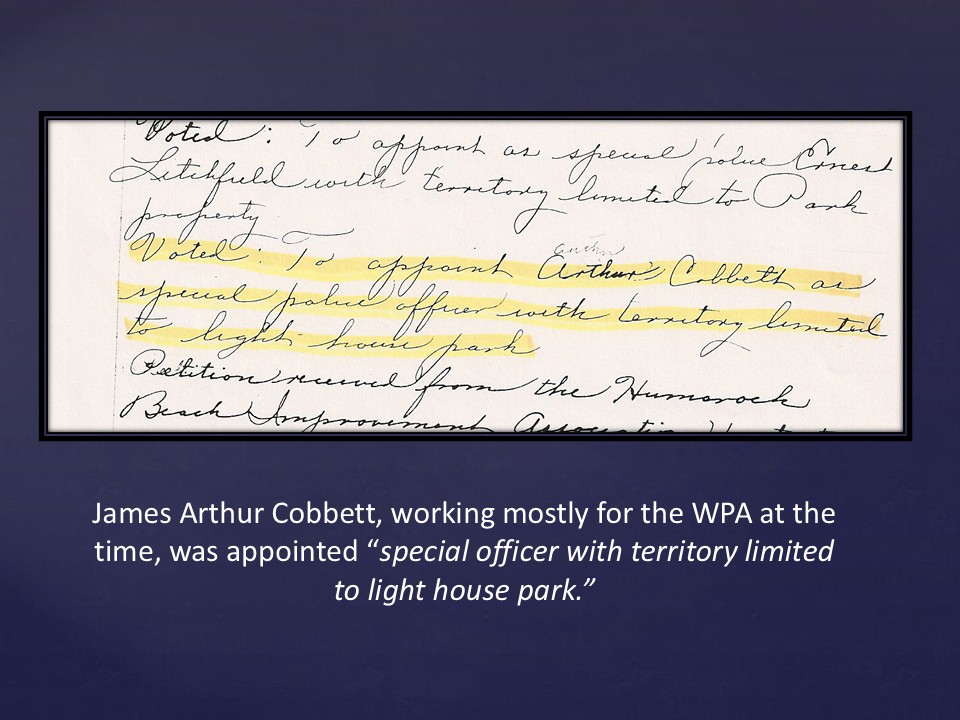 Voted: To appoint as special police Ernest
Litchfield with territory limited to Park
property
Voted: To appoint Arthur Cobbett as
special police officer with territory limited
to light house park
Petition received from the Humarock
Beach Improvement Association
James Arthur Cobbett, working mostly for the WPA at the
time, was appointed “special officer with territory limited
to light house park.”